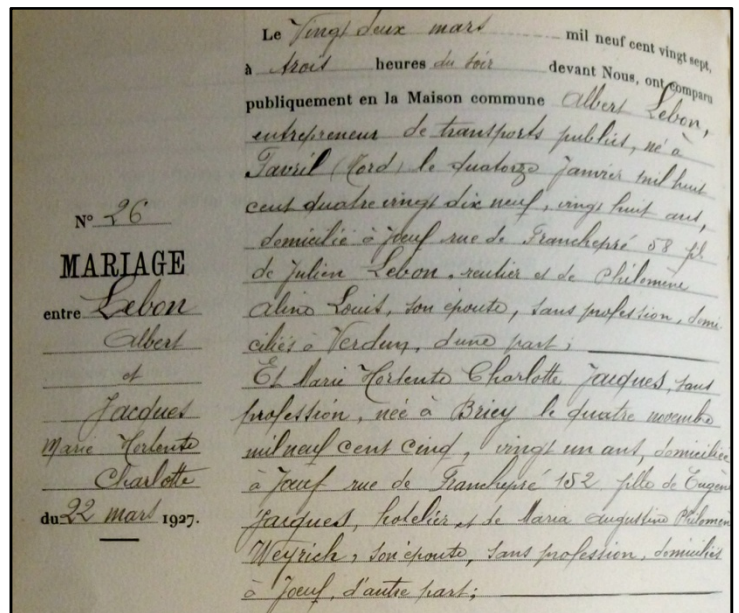 N° 26
MARIAGE
entre Lebon
Albert
et
Jacques
Marie Hortense
Charlotte
du 22 mars 1927.
Le Vingt deux mars mil neuf cent vingt sept,
à trois heures du soir devant Nous, ont comparu
publiquement en la Maison commune Albert Lebon,
entrepreneur de transports publics, né à
Favril (Nord) le quatorze Janvier mil huit
cent quatre vingt dix neuf, vingt huit ans,
domicilié à Joeuf rue de Franchepré 58 fil
de Julien Lebon, rentier et de Philomène
Aline Louis, son épouse, sans profession, domi
ciliés à Verdun, d'une part;
Et Marie Hortense Charlotte Jacques, sans
profession, née à Briey le quatre novembre
mil neuf cent cinq, vingt un ans, domiciliée
à Joeuf rue de Franchepré 152 fille de Eugène
Jacques, hotelier et de Maria Augustine Philomène
Weyrich, son épouse, sans profession, domiciliés
à Joeuf, d'autre part;